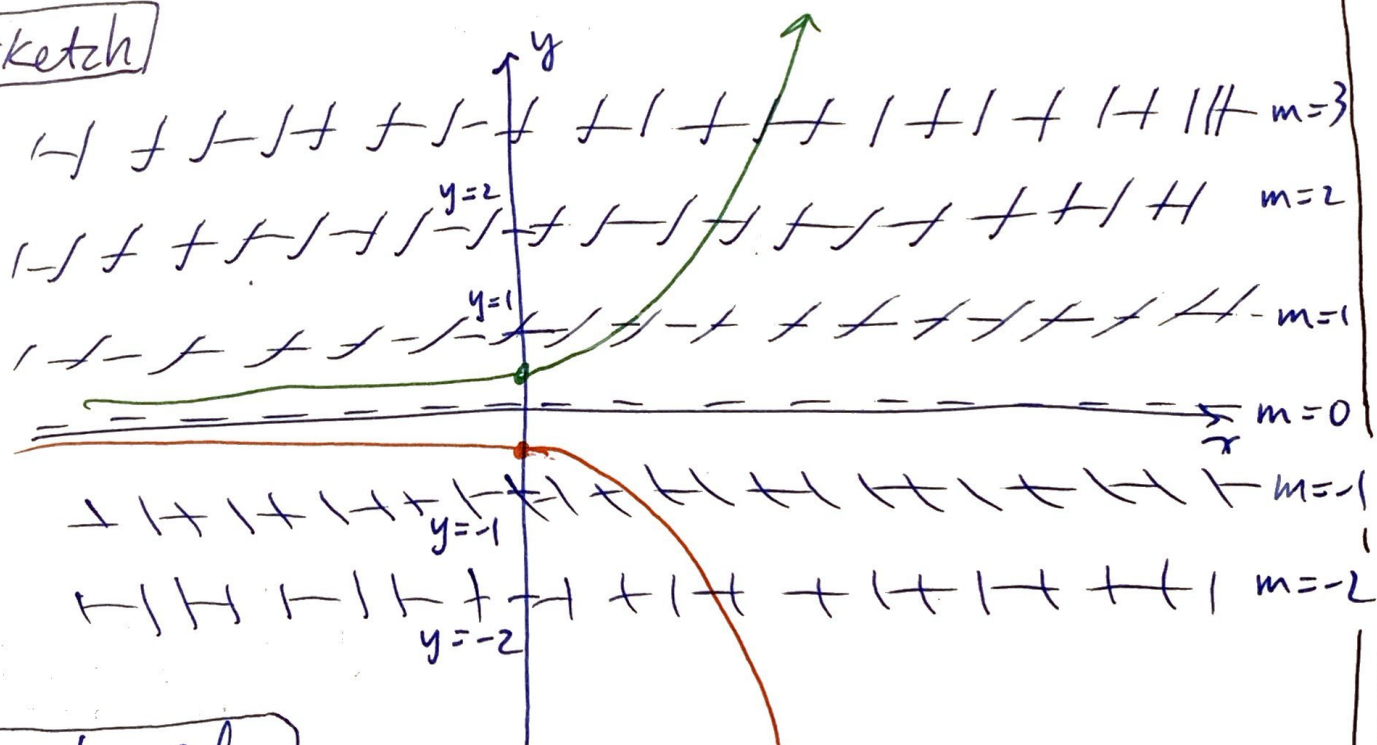 ketch
y
m=3
y=2
m=2
y=1
m=1
m=0
x
m=-1
y=-1
m=-2
y=-2